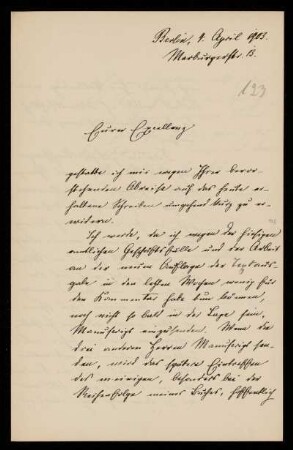 Berlin, 9. April 1903.
Marburgerstr. 13.
123
Eurer Exzellenz
gestatte ich mir wegen Ihrer bevor-
stehenden Abreise auf das heute er-
haltene Schreiben umgehend kurz zu er-
widern.
Ich werde, da ich wegen der hiesigen
amtlichen Geschäftsfülle und der Arbeit
an der neuen Auflage der Textaus-
gabe in den letzten Wochen wenig für
den Kommentar habe tun können,
noch nicht so bald in der Lage sein,
Manuskript einzusenden. Wenn die
drei anderen Herren Manuskript sen-
den, wird das spätere Eintreffen
des meinigen, besonders bei der
Reihenfolge meines Buches, hoffentlich